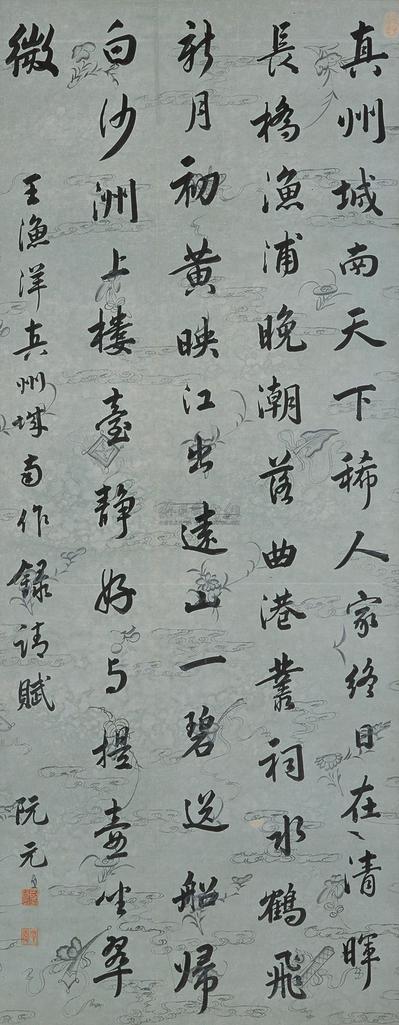 真州城南天下稀人家終日在清暉
長橋漁浦晚潮落曲港叢祠水鶴飛
新月初黃映江出遠山一碧送船歸
白沙洲上樓臺靜好与提壺坐翠
微
王漁洋真州城南作錄請賦
阮元